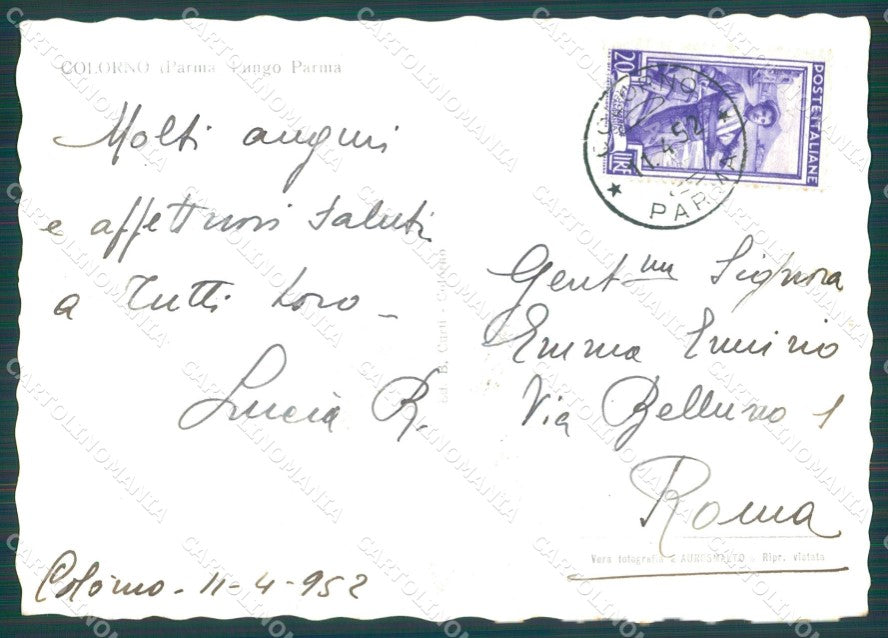 COLORNO (Parma) Lungo Parma
Molti auguri
e affettuosi saluti
a Tutti Loro -
Lucia R.
Colorno - 11-4-952
POSTE ITALIANE
20
LIRE
COLORNO
11.4.52
PARMA
Gent.ma Signora
Emma
Via Belluno 1
Roma
Vera fotografia - Ripr. vietata
CARTOLINOMANIA